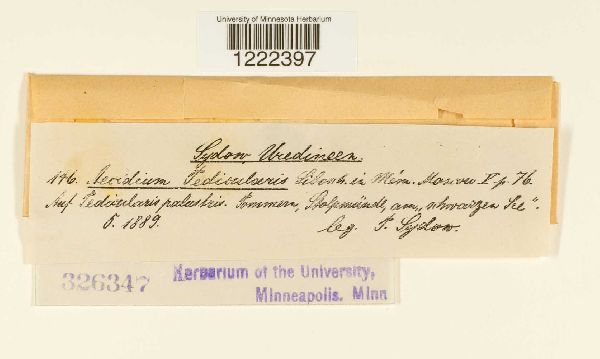 University of Minnesota Herbarium
1222397
Sydow, Uredineen.
146. Aecidium Pedicularis Libosch. in Mém. Moscou V p. 76.
Auf Pedicularis palustris. Pommern, Stolpmünde, am „schwarzen See“.
6. 1889. leg. P. Sydow.
326347
Herbarium of the University,
Minneapolis. Minn